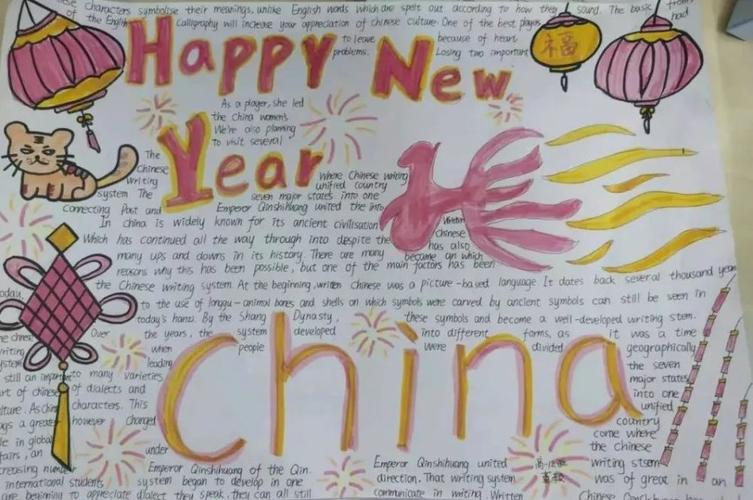 Characters symbolise their meanings, unlike English words which are spelt out according to how they sound. The basic
of the English Calligraphy will increase your appreciation of Chinese culture. One of the best players had
to leave because of heart
problems. Losing two important
福
Happy New
Year
As a player, she led
the China women's
We're also planning
to visit several
The
Chinese
writing
system The
Where Chinese writing
unified country
seven major states into one
connecting Past and Emperor Qinshihuang united the into
In china is widely known for its ancient civilisation
Written
Chinese
has also
become an which
Which has continued all the way through into despite the
many ups and downs in its history. There are many
reasons why this has been possible, but one of the main factors has been
the Chinese writing system At the beginning, written Chinese was a picture-based language It dates back several thousand year
today, to the use of longgu-animal bones and shells on which symbols were carved by ancient symbols can still be seen in
today's hanzi. By the Shang Dynasty, these symbols and become a well-developed writing stem.
Over the years, the system developed into different forms, as it was a time
when people were divided geographically
China
leading
to many varieties
of dialects and
characters. This
however changed
under
still an important
art of chinese
culture. As China
a greater
in global
affairs, an
increasing number
international students
beginning to appreciate
the seven
major states
into one
unified
country
come where
the Chinese
writing stsem
was of great in an
Emperor Qinshihuang of the Qin.
system began to develop in one
dialect they speak, they can all still
Emperor Qinshihuang united
direction. That writing system
communicate in writing. Written